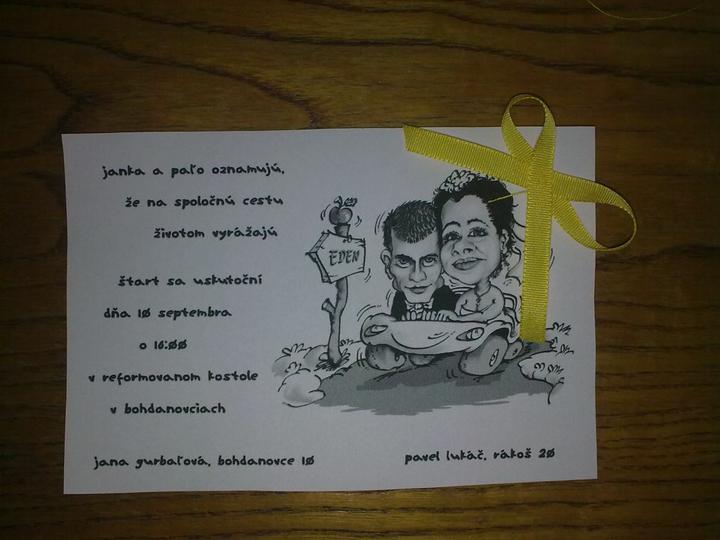 janka a paľo oznamujú,
že na spoločnú cestu
životom vyrážajú
štart sa uskutoční
dňa 10 septembra
o 16:00
v reformovanom kostole
v bohdanovciach
EDEN
jana gurbaľová, bohdanovce 10
pavel lukáč, rákoš 20